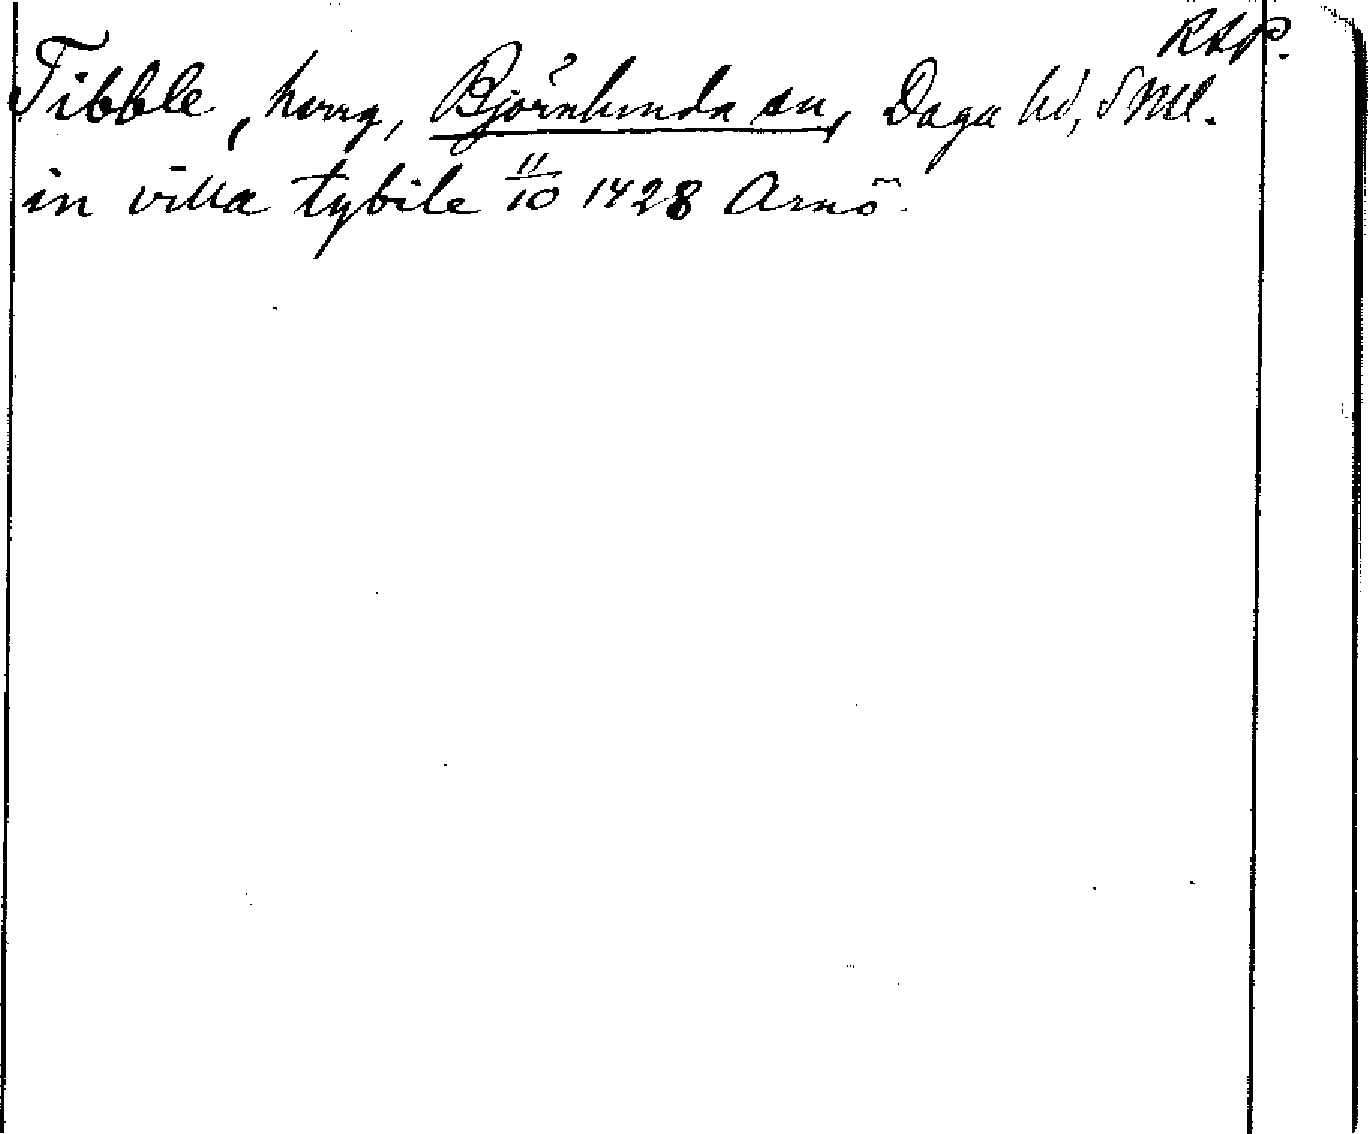 RAP.
Tibble, herrg, Björnlunda sn, Daga hd, Sml.
in villa tybile 11/10 1428 Arnö.